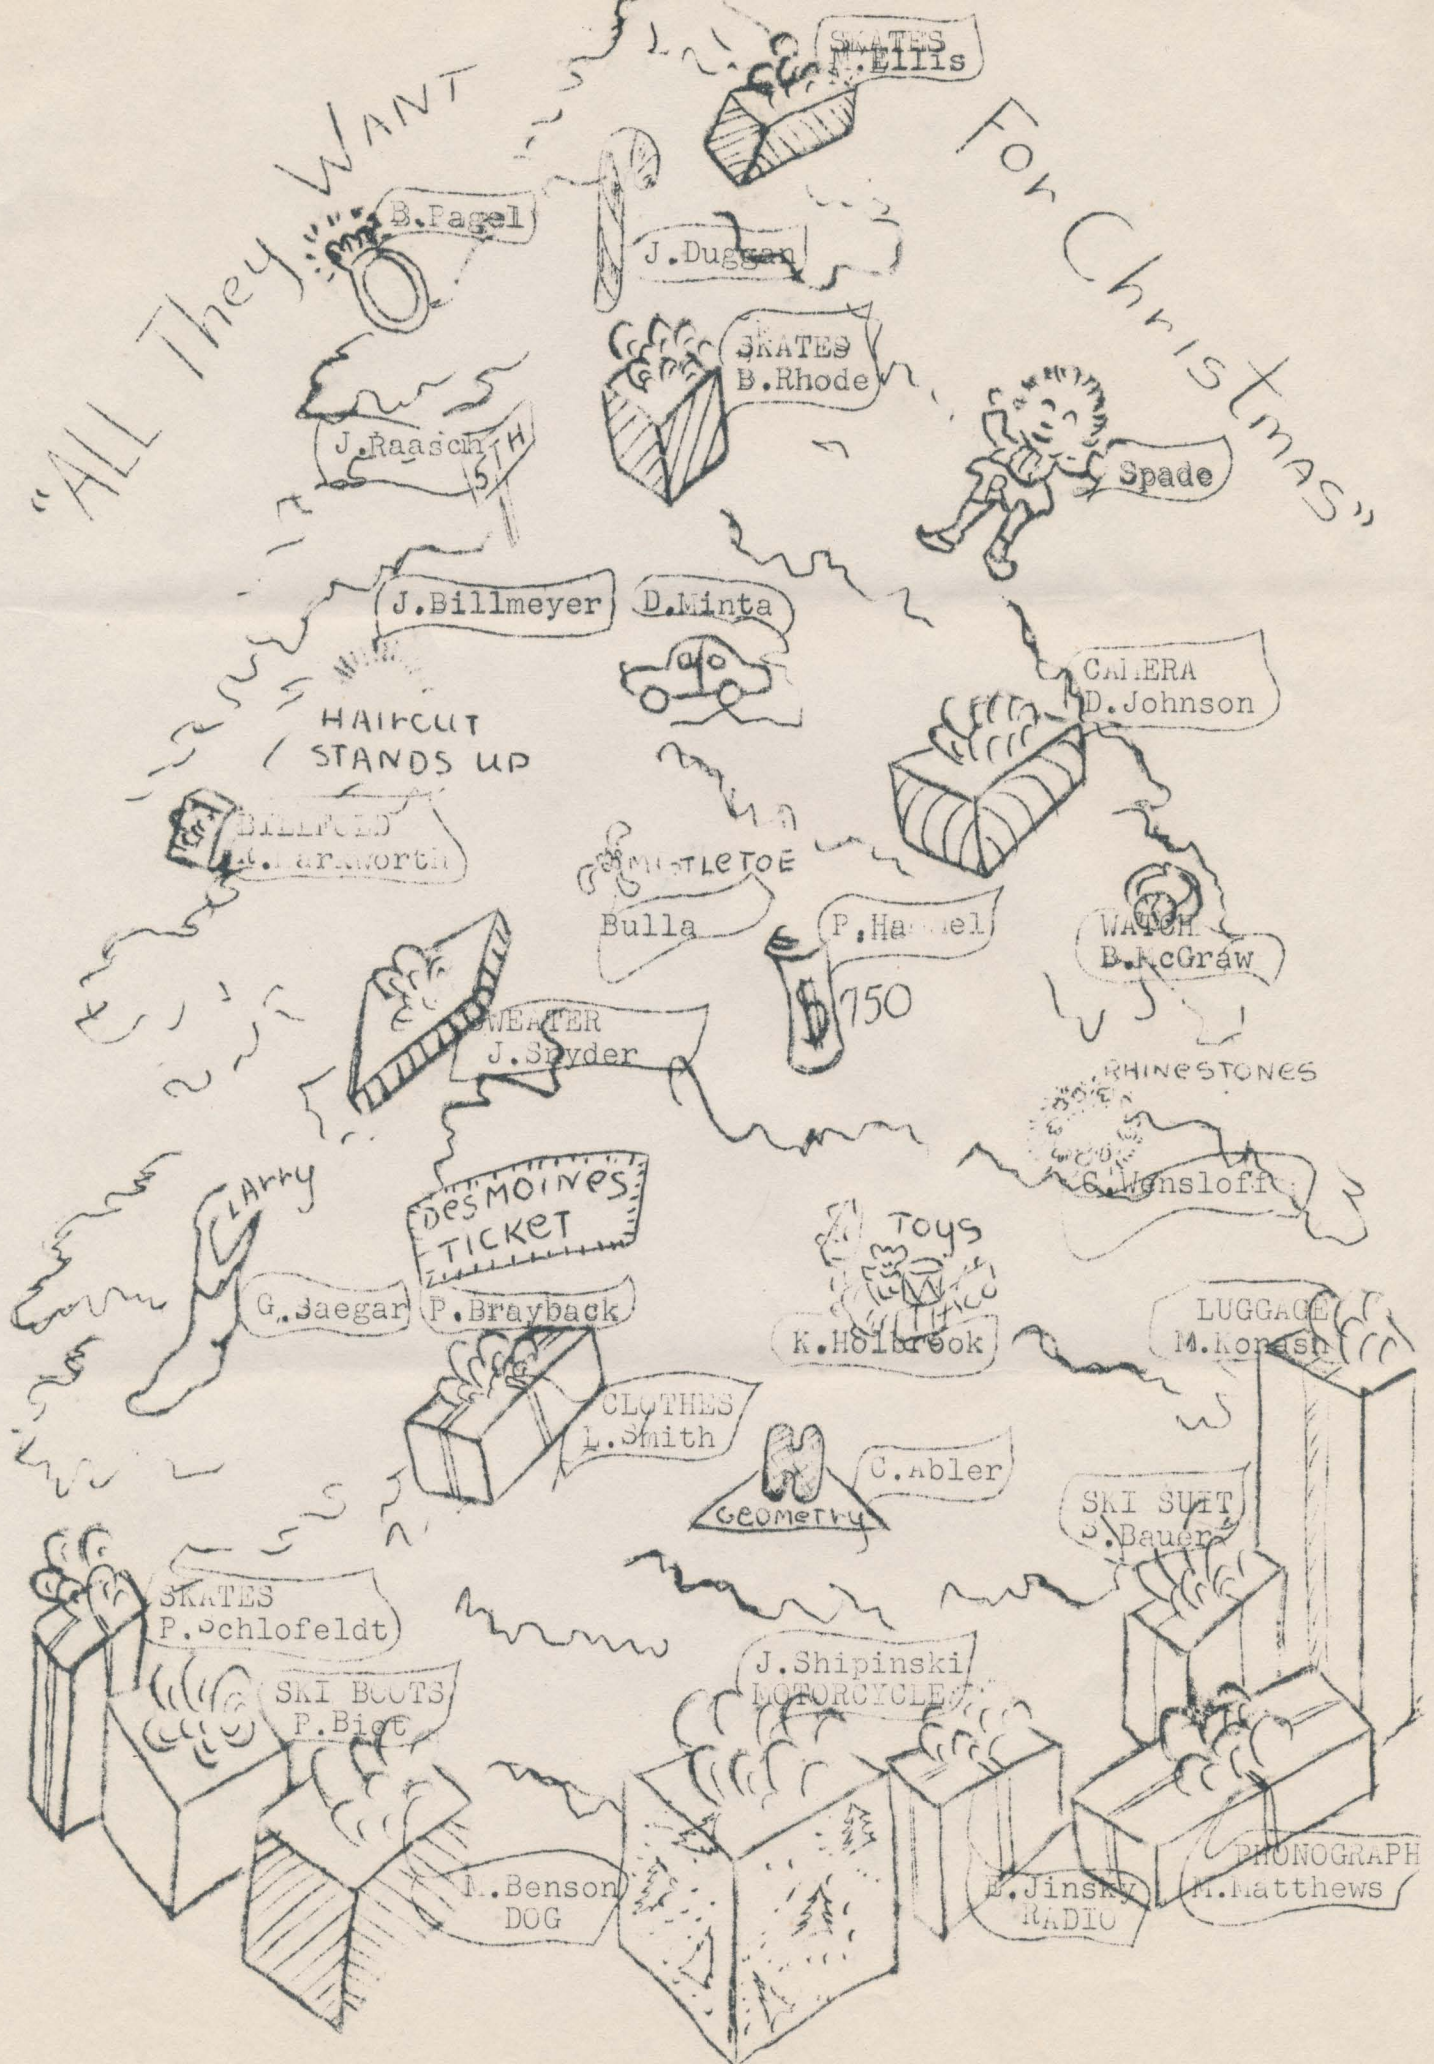 "ALL They WANT For Christmas"
SKATES
M.Ellis
B.Pagel
J.Duggan
SKATES
B.Rhode
J.Raasch
5TH
Spade
J.Billmeyer
D.Minta
HAIrCUT
STANDS UP
CAMERA
D.Johnson
BILLFOLD
MISTLETOE
Bulla
P.Hammel
$ 750
WATCH
B.McGraw
SWEATER
J.Snyder
RHINESTONES
C.Wensloff
LArry
DesMOINes
TICKET
G.Jaegar
P.Brayback
TOYS
K.Holbrook
LUGGAGE
M.Konash
CLOTHES
L.Smith
H
GeOMeTry
C.Abler
SKI SUIT
Bauer
SKATES
P.Schlofeldt
SKI BOOTS
J.Shipinski
MOTORCYCLE
Benson
DOG
Jinsky
RADIO
PHONOGRAPH
M.Matthews